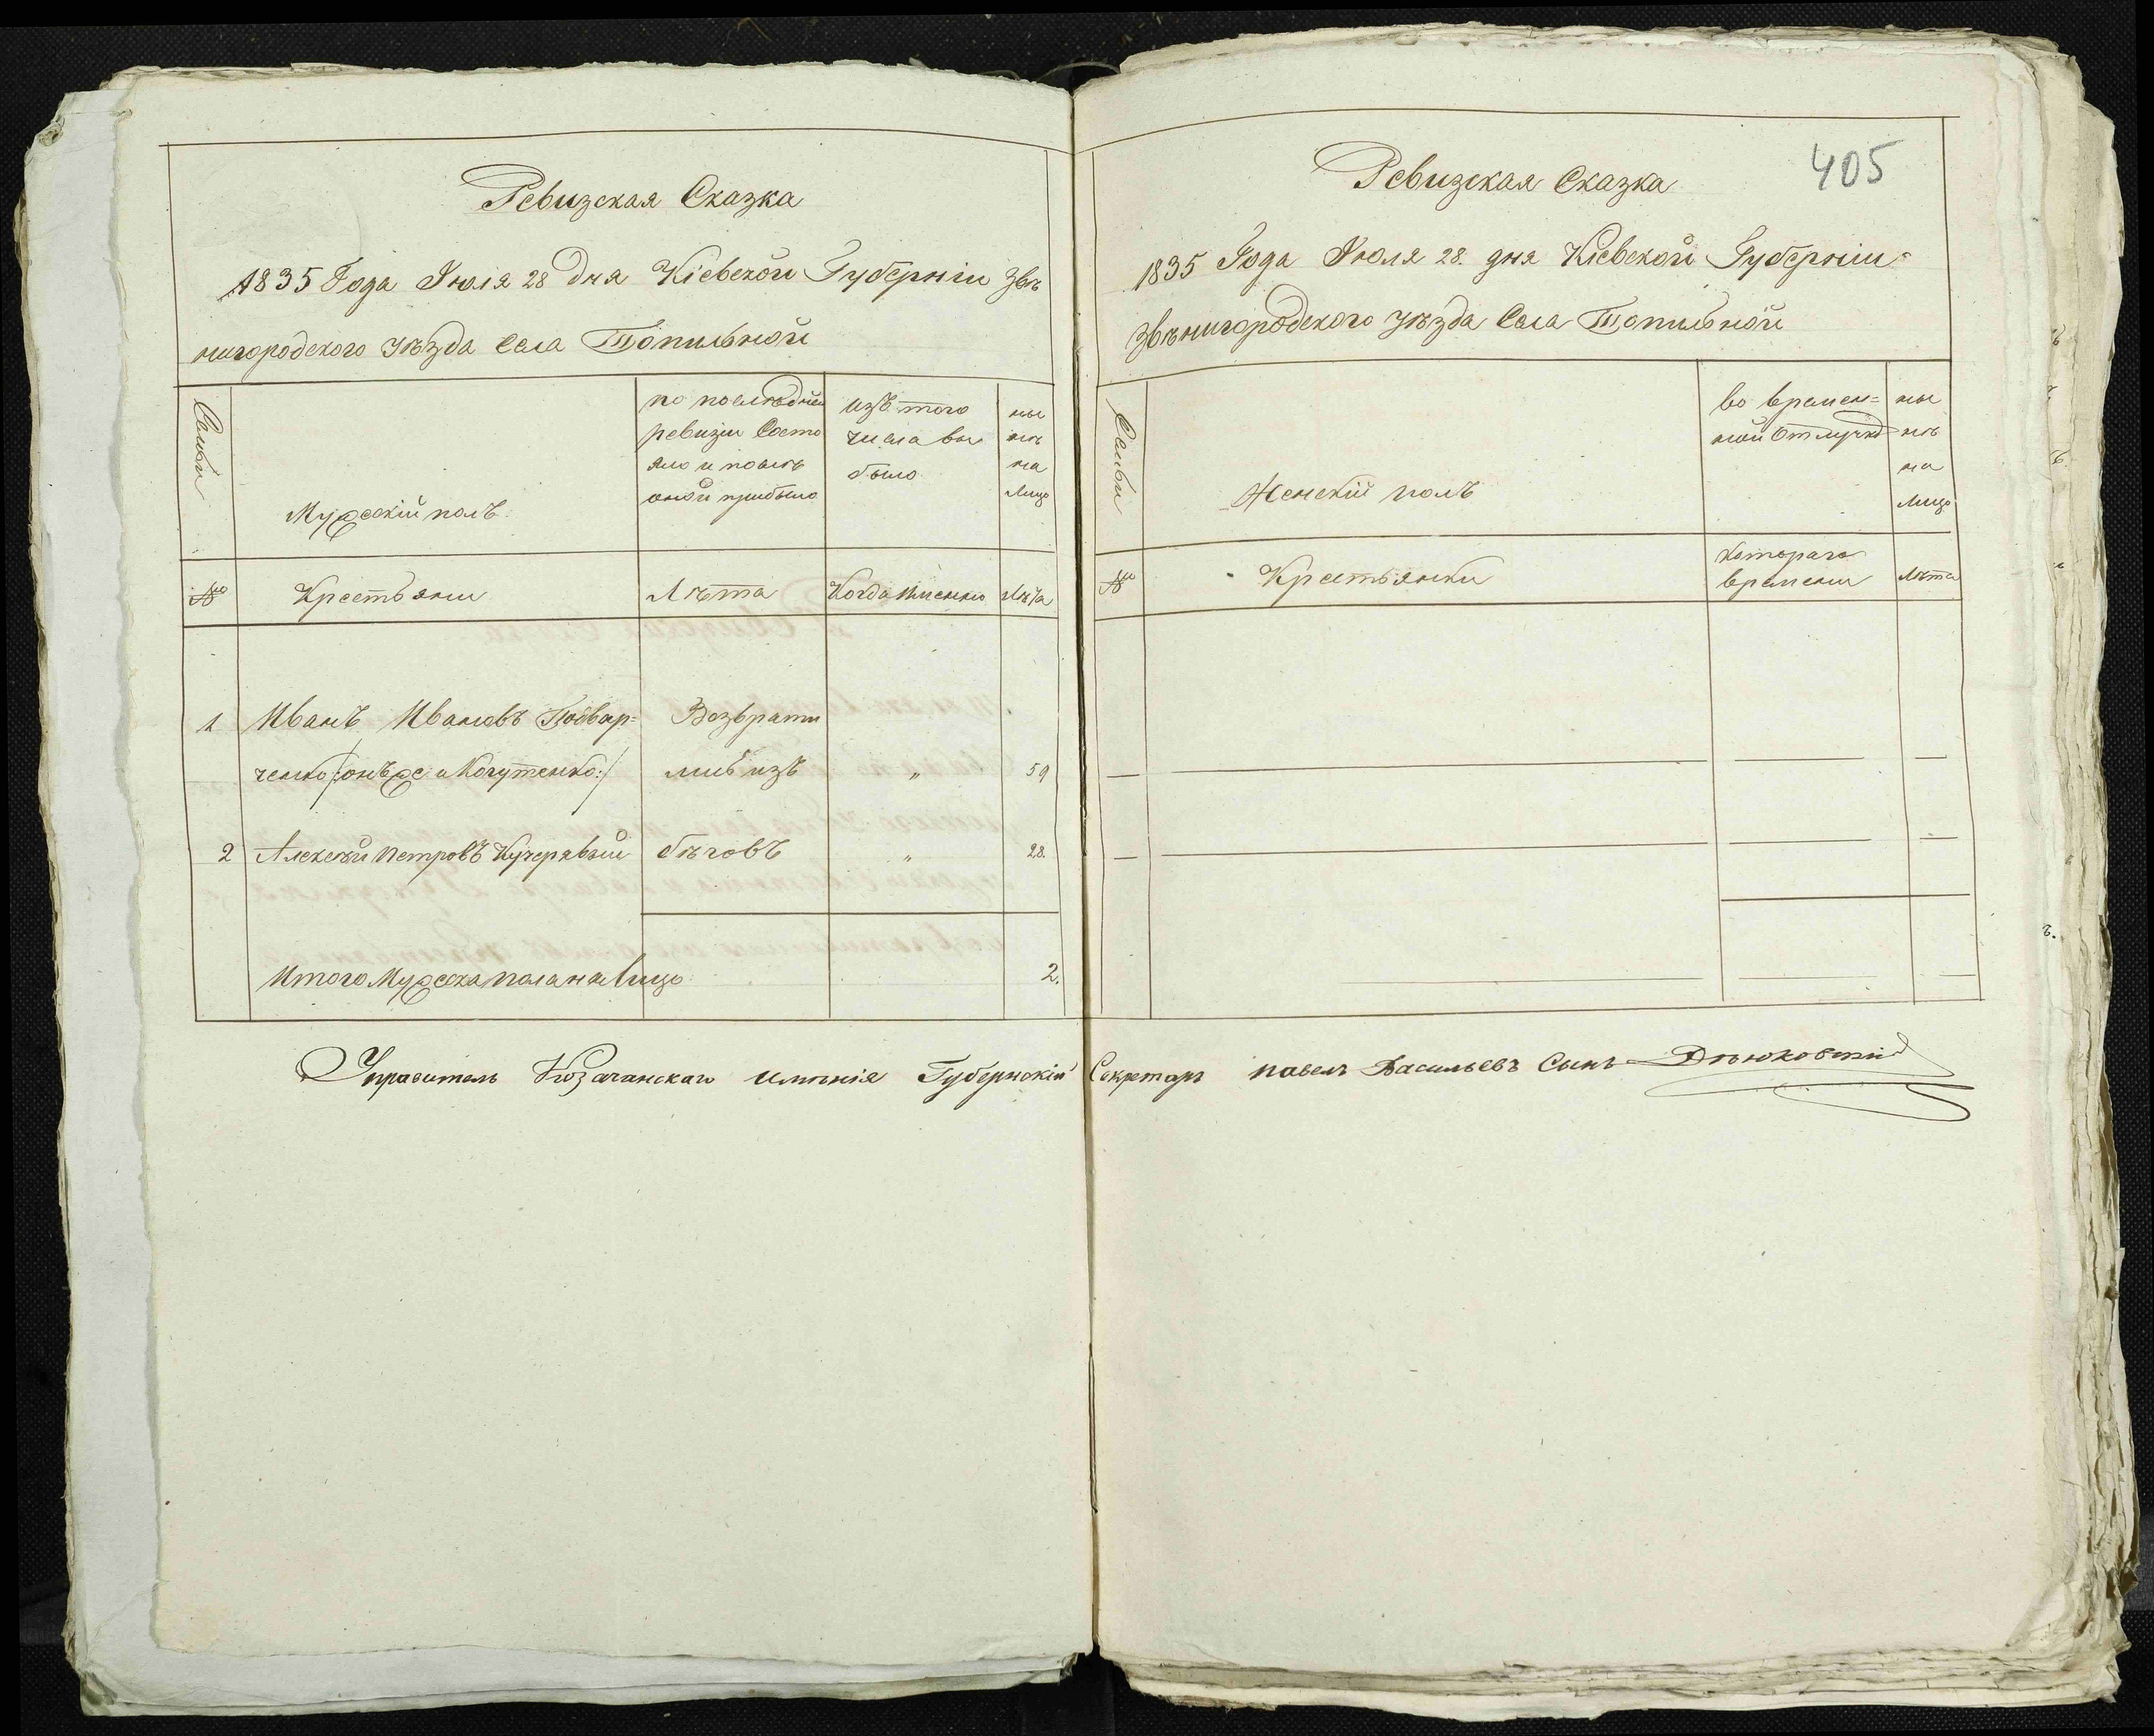 Ревизская Сказка
1835 Года Июля 28 Дня Кіевской Губерніи Звѣ
нигородского уѣзда Села Топильной
Семьи
Мужескій полъ.
по послѣдней
ревизіи Состо
яло и послѣ
оной прибыло
изъ того
числа вы
было
ны
нѣ
на
Лицо
№
Крестьяни
Лѣта
Когда Именно
Лѣта
1
Иванъ Ивановъ
Возврати
ченко /:онъже и Когутенко:/
лись изъ
"
59
2
Алексѣй Петровъ Кучерявый
бѣговъ
"
28.
Итого Мужеска пола на Лицо
2.
405
Ревизская Сказка
1835 Года Июля 28. дня Кіевской Губерніи
Звѣнигородского уѣзда Села Топильной
Семьи
Женскій полъ
во времен=
ной Отлучкѣ
ны
нѣ
на
Лицо
№
Крестьянки
Котораго
времени
Лѣта
Управитель Козачанскаго имѣнія Губернскій Секретарь павелъ Васильевъ Сынъ